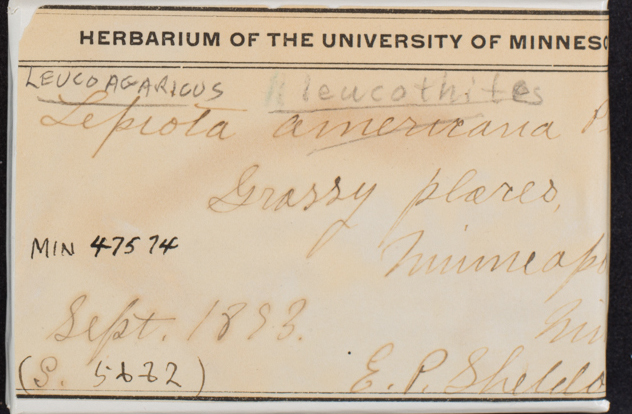 HERBARIUM OF THE UNIVERSITY OF MINNESO
LEUCOAGARICUS " leucothites
Lepiota americana P
Grassy places,
MIN 47574
Minneap
Sept. 1893. Min
(S. 5662) E. P. Sheldo